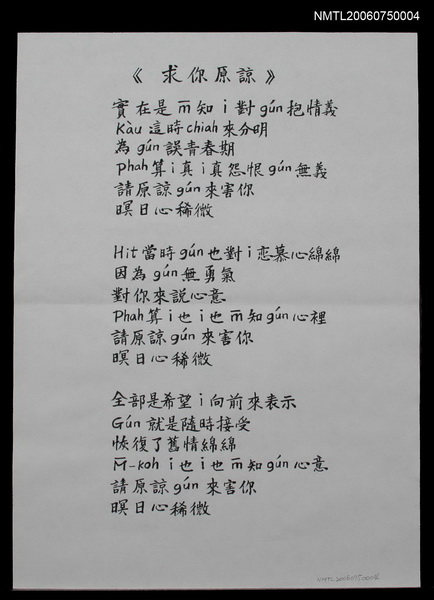 NMTL20060750004
《求你原諒》
實在是m̄知i對gún抱情義
Kàu這時chiah來分明
為gún誤青春期
Phah算i真i真怨恨gún無義
請原諒gún來害你
暝日心稀微
Hit當時gún也對i恋慕心綿綿
因為gún無勇氣
對你來說心意
Phah算i也i也m̄知gún心裡
請原諒gún來害你
暝日心稀微
全部是希望i向前來表示
Gún就是隨時接受
恢復了舊情綿綿
M̄-koh i也i也m̄知gún心意
請原諒gún來害你
暝日心稀微
NMTL20060750004